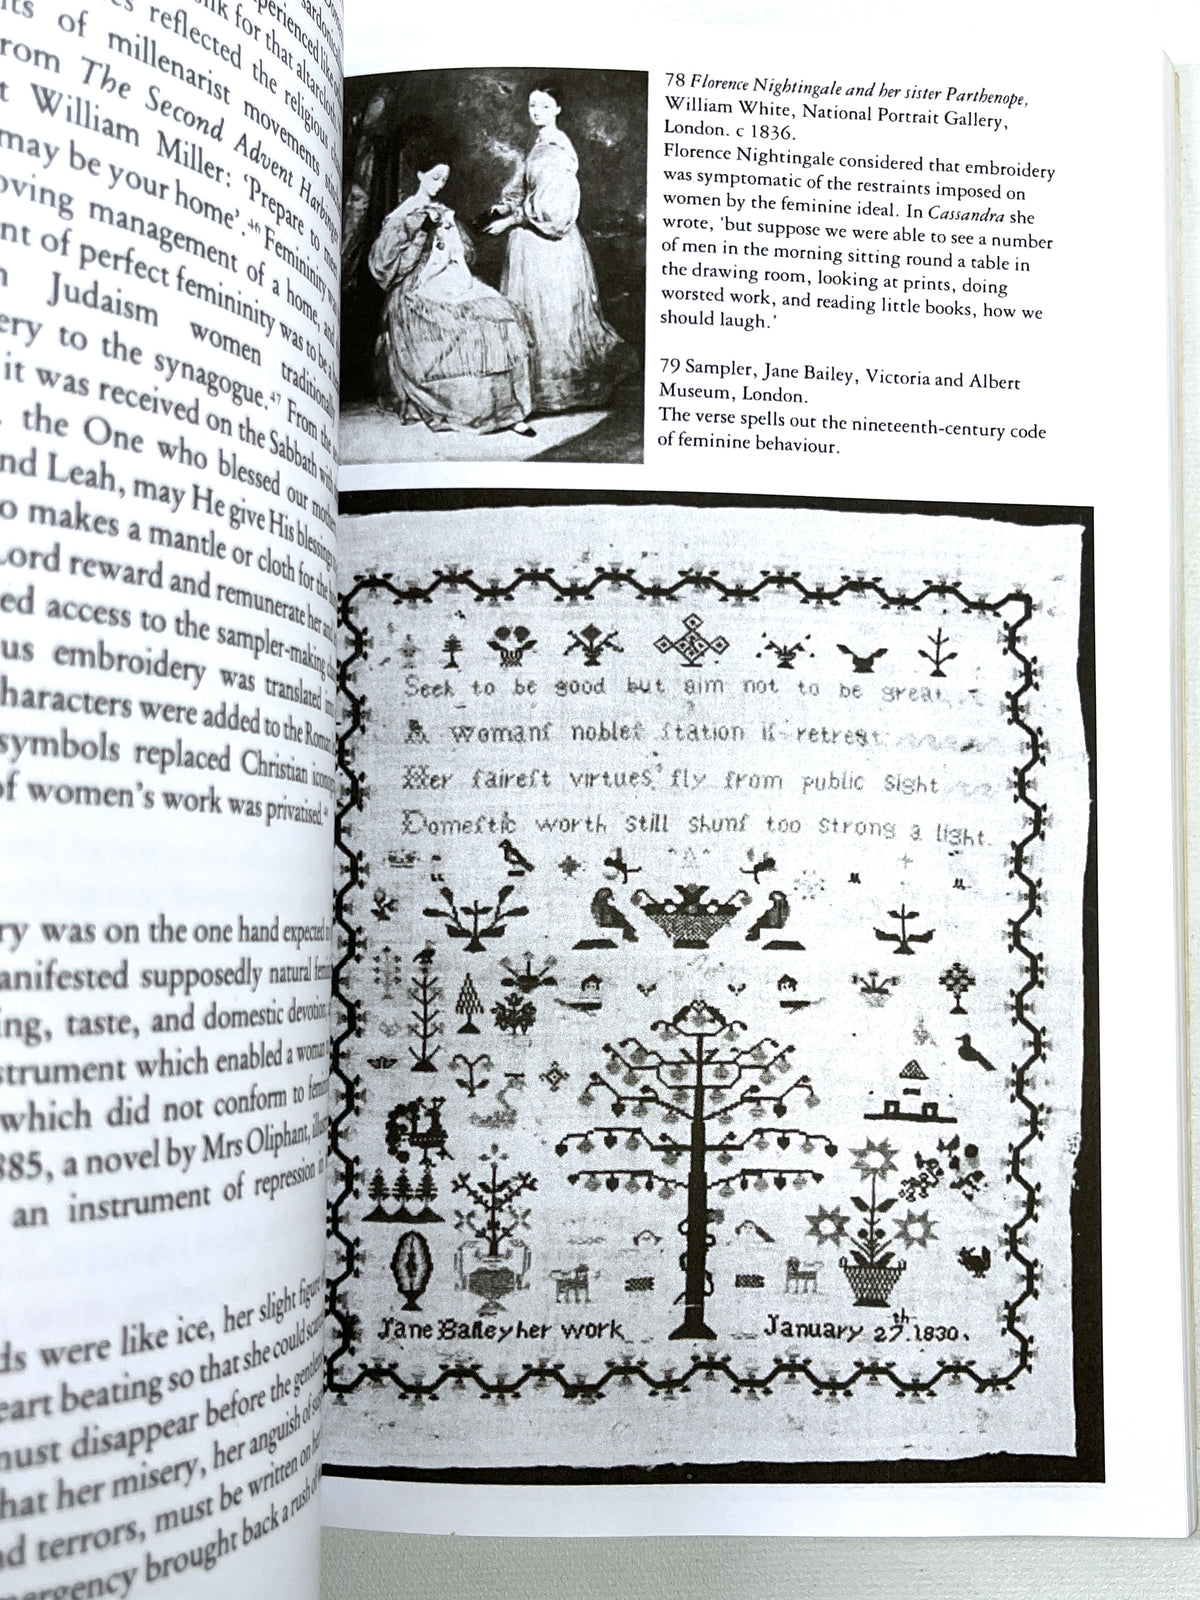 reflected the religious
of millenarist movements
from The Second Advent Harbinger
William Miller: ‘Prepare to
may be your home’.⁴⁶ Femininity was
management of a home, and
of perfect femininity was to be a
Judaism women traditionally
to the synagogue.⁴⁷ From the
it was received on the Sabbath with
the One who blessed our mothers
and Leah, may He give His blessing
makes a mantle or cloth for the
Lord reward and remunerate her and
access to the sampler-making
embroidery was translated
characters were added to the Roman
symbols replaced Christian
of women’s work was privatised.
was on the one hand expected
manifested supposedly natural
taste, and domestic devotion
which enabled a woman
which did not conform to
1885, a novel by Mrs Oliphant,
an instrument of repression in
were like ice, her slight figure
heart beating so that she could
must disappear before the
that her misery, her anguish of
and terrors, must be written on
emergency brought back a rush of
78 Florence Nightingale and her sister Parthenope,
William White, National Portrait Gallery,
London. c 1836.
Florence Nightingale considered that embroidery
was symptomatic of the restraints imposed on
women by the feminine ideal. In Cassandra she
wrote, ‘but suppose we were able to see a number
of men in the morning sitting round a table in
the drawing room, looking at prints, doing
worsted work, and reading little books, how we
should laugh.’
79 Sampler, Jane Bailey, Victoria and Albert
Museum, London.
The verse spells out the nineteenth-century code
of feminine behaviour.
Seek to be good but aim not to be great
A womanſ nobleſt ſtation iſ retreat
Her faireſt virtues fly from public Sight
Domeſtic worth Still Shunſ too Strong a light.
Jane Bailey her work
January 27th. 1830.